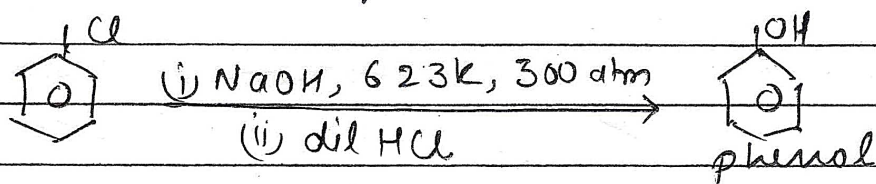 Cl OH
(i) NaOH, 623k, 300 atm
(ii) dil HCl
phenol